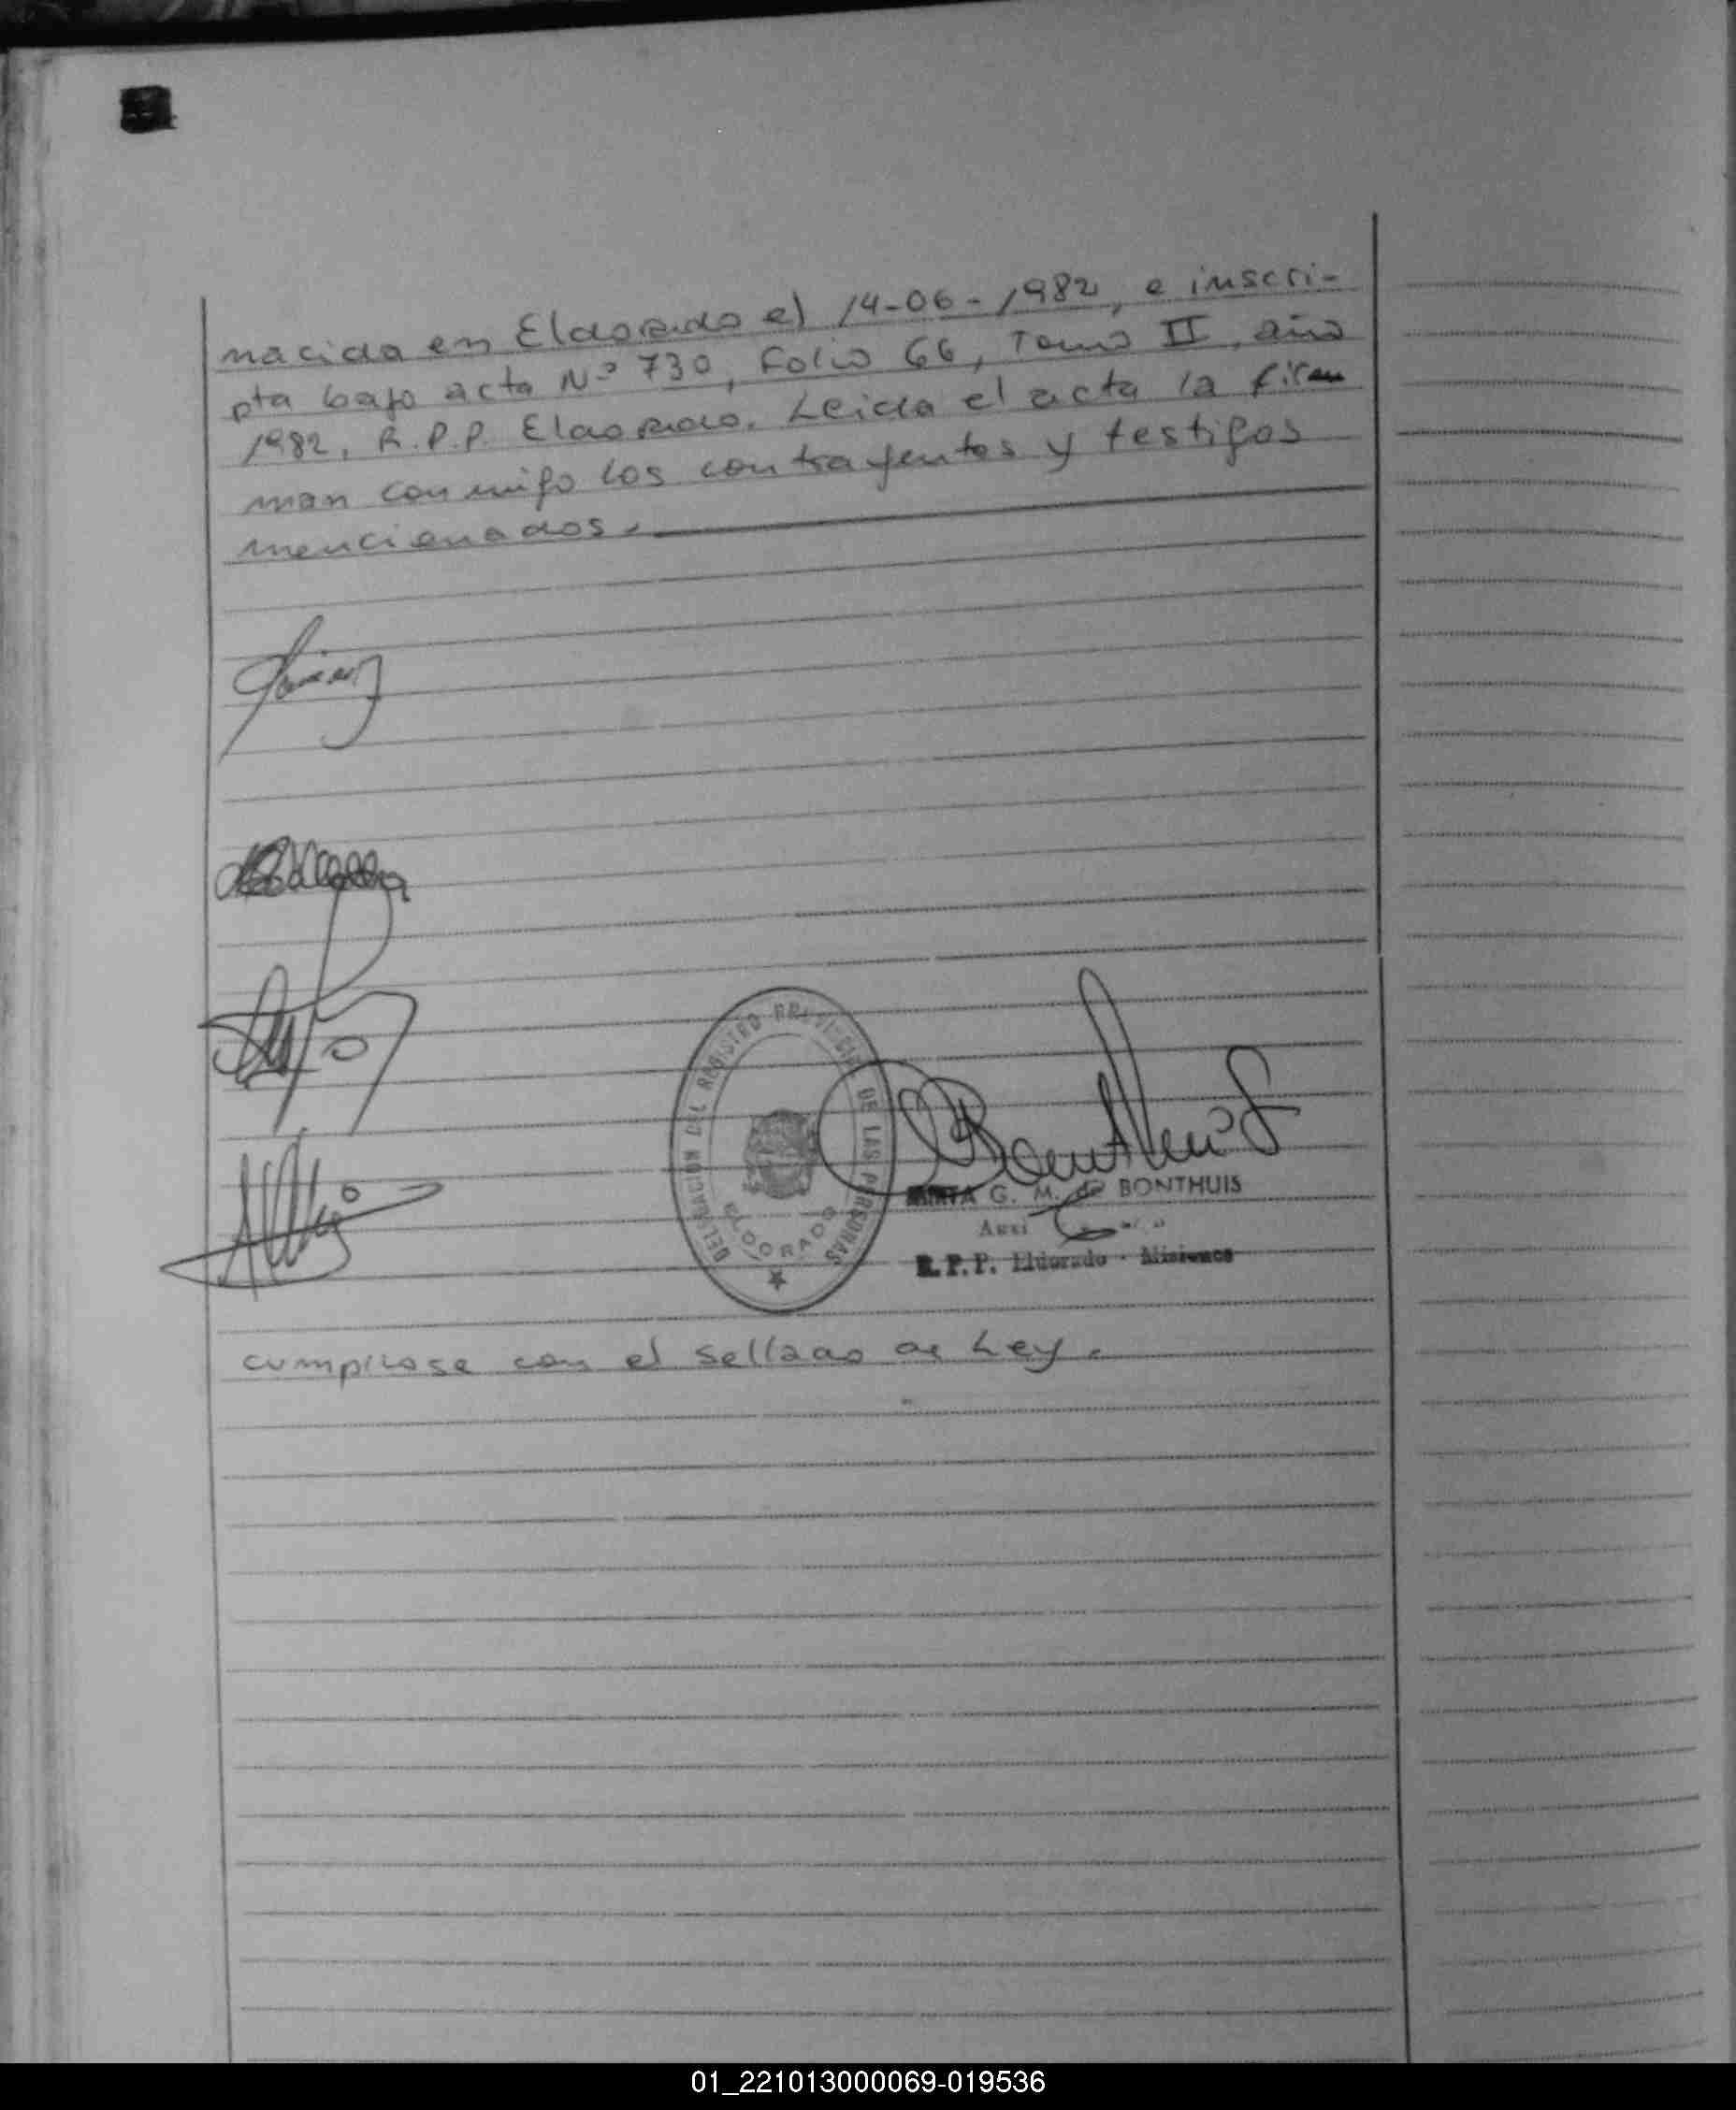 nacida en Eldorado el 14-06-1982, e inscri-
pta bajo acta Nº 730, Folio 66, Tomo II, año
1982, R.P.P. Eldorado. Leida el acta la firm
man conmigo los contrayentes y testigos
mencionados.
DELEGACION DEL REGISTRO PROVINCIAL DE LAS PERSONAS
ELDORADO
Bonthuis
G. M. de BONTHUIS
R.P.P. Eldorado - Misiones
cumplase con el sellado de Ley.
01_221013000069-019536